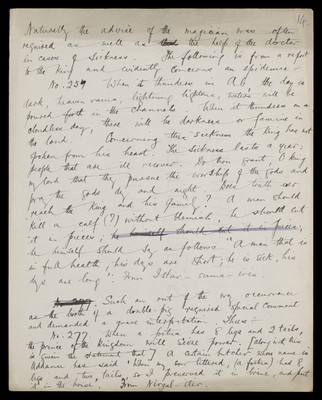 14.
Naturally the advice of the magician was often
required as well as the help of the doctor
in cases of sickness. The following is from a report
to the King and evidently concerns an epidemic
No. 257 When it thunders in Ab the day is
dark, heaven rains, lightning lightens, waters will be
poured forth in the channels. When it thunders on a
cloudless day, there will be darkness or famine in
the land. Concerning this sickness the King has not
spoken from his heart. The sickness lasts a year:
people that are ill recover. Do thou grant, O King
my lord that they pursue the worship of the gods and
pray the gods day and night. Does truth ever
reach the King and his family? A man should
kill a calf (?) without blemish, he should cut
it in pieces, he himself should cut it in pieces,
he himself should say as follows "A man that is
in full health, his days are short; he is sick, his
days are long." From Istar-suma-eres.
Such an out of the way occurrence
as the birth of a double-pig required special comment
and demanded a grave interpretation. Thus -
No. 277 When a foetus has 8 legs and 2 tails,
the prince of the Kingdom will seize power. [Along with this
is given the statement that] A certain butcher whose name is
Uddanu has said "When my sow littered, (a foetus) had 8
legs and two tails, so I preserved it in brine, and put
it in the house." From Nirgal-etir.